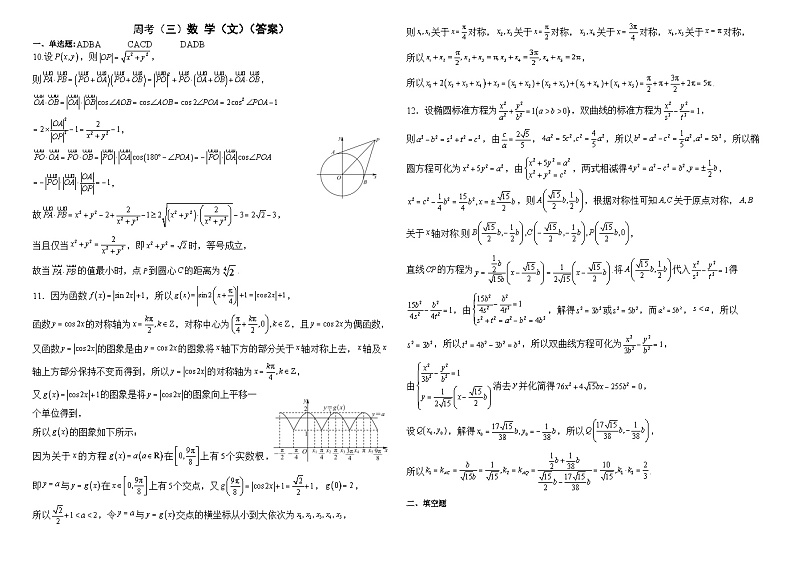 周考（三）数 学（文）（答案）
一、单选题: ADBA CACD DADB
10.设P(x,y)，则|OP|=√(x²+y²)，
则PA·PB=(PO+OA)(PO+OB)=|PO|²+PO·(OA+OB)+OA·OB，
OA·OB=|OA|·|OB|cos∠AOB=cos∠AOB=cos2∠POA=2cos²∠POA−1
=2×|OA|²/|OP|²−1=2/(x²+y²)−1，
PO·OA=PO·OB=|PO|·|OA|cos(180°−∠POA)=−|PO|·|OA|cos∠POA
=−|PO|·|OA|·|OA|/|OP|=−1，
故PA·PB=x²+y²−2+2/(x²+y²)−1≥2√((x²+y²)·(2/(x²+y²)))−3=2√2−3，
当且仅当x²+y²=2/(x²+y²)，即x²+y²=√2时，等号成立，
故当PA·PB的值最小时，点P到圆心O的距离为⁴√2．
11．因为函数f(x)=|sin2x|，所以g(x)=|sin2(x+π/4)|+1=|cos2x|+1，
函数y=cos2x的对称轴为x=kπ/2,k∈Z，对称中心为(π/4+kπ/2,0),k∈Z，且x为偶函数，
又函数y=|cos2x|的图象是由y=cos2x的图象将x轴下方的部分关于x轴对称上去，x轴及x
轴上方部分保持不变而得到，所以y=|cos2x|的对称轴为x=kπ/4,k∈Z，
又g(x)=|cos2x|+1的图象是将y=|cos2x|的图象向上平移一
个单位得到，
所以g(x)的图象如下所示：
因为关于x的方程g(x)=a(a∈R)在[0,9π/8]上有5个实数根，
即y=a与y=g(x)在x∈[0,9π/8]上有5个交点，又g(9π/8)=|cos2x|+1=√2/2+1，g(0)=2，
所以√2/2+1<a<2，令y=a与y=g(x)交点的横坐标从小到大依次为x₁,x₂,x₃,x₄,x₅，
则x₁,x₂关于x=π/4对称，x₂,x₃关于x=π/2对称，x₃,x₄关于x=3π/4对称，x₄,x₅关于x=π对称，
所以x₁+x₂=π/2,x₂+x₃=π,x₃+x₄=3π/2,x₄+x₅=2π，
所以x₁+2(x₂+x₃+x₄)+x₅=(x₁+x₂)+(x₂+x₃)+(x₃+x₄)+(x₄+x₅)=π/2+π+3π/2+2π=5π．
12．设椭圆标准方程为x²/a²+y²/b²=1(a>b>0)，双曲线的标准方程为x²/s²−y²/t²=1，
则a²−b²=s²+t²=c²，由c/a=2√5/5，4a²=5c²,c²=4/5a²，所以b²=a²−c²=1/5a²,a²=5b²，所以椭
圆方程可化为x²+5y²=a²，由{x²+5y²=a² x²+y²=c²，两式相减得4y²=a²−c²=b²,y=±1/2b，
x²=c²−1/4b²=15/4b²,x=±√15/2b，则A(√15/2b,1/2b)，根据对称性可知A,C关于原点对称，A,B
关于x轴对称.则B(√15/2b,−1/2b),C(−√15/2b,−1/2b),P(√15/2b,0)，
直线CP的方程为y=(1/2b)/(√15b)(x−√15/2b)=1/(2√15)(x−√15/2b)．将A(√15/2b,1/2b)代入x²/s²−y²/t²=1得
15b²/4s²−b²/4t²=1，由{15b²/4s²−b²/4t²=1 s²+t²=a²−b²=4b²，解得s²=3b²或s²=5b²，而a²=5b²，s<a，所以
s²=3b²，所以t²=4b²−3b²=b²，所以双曲线方程可化为x²/3b²−y²/b²=1，
由{x²/3b²−y²/b²=1 y=1/(2√15)(x−√15/2b)消去y并化简得76x²+4√15bx−255b²=0，
设Q(x₀,y₀)，解得x₀=17√15/38b,y₀=−1/38b，所以Q(17√15/38b,−1/38b)，
所以k₁=k_AC=b/(√15b)=1/√15,k₂=k_AQ=(1/2b+1/38b)/(√15/2b−17√15/38b)=10/√15,k₁·k₂=2/3．
二、填空题